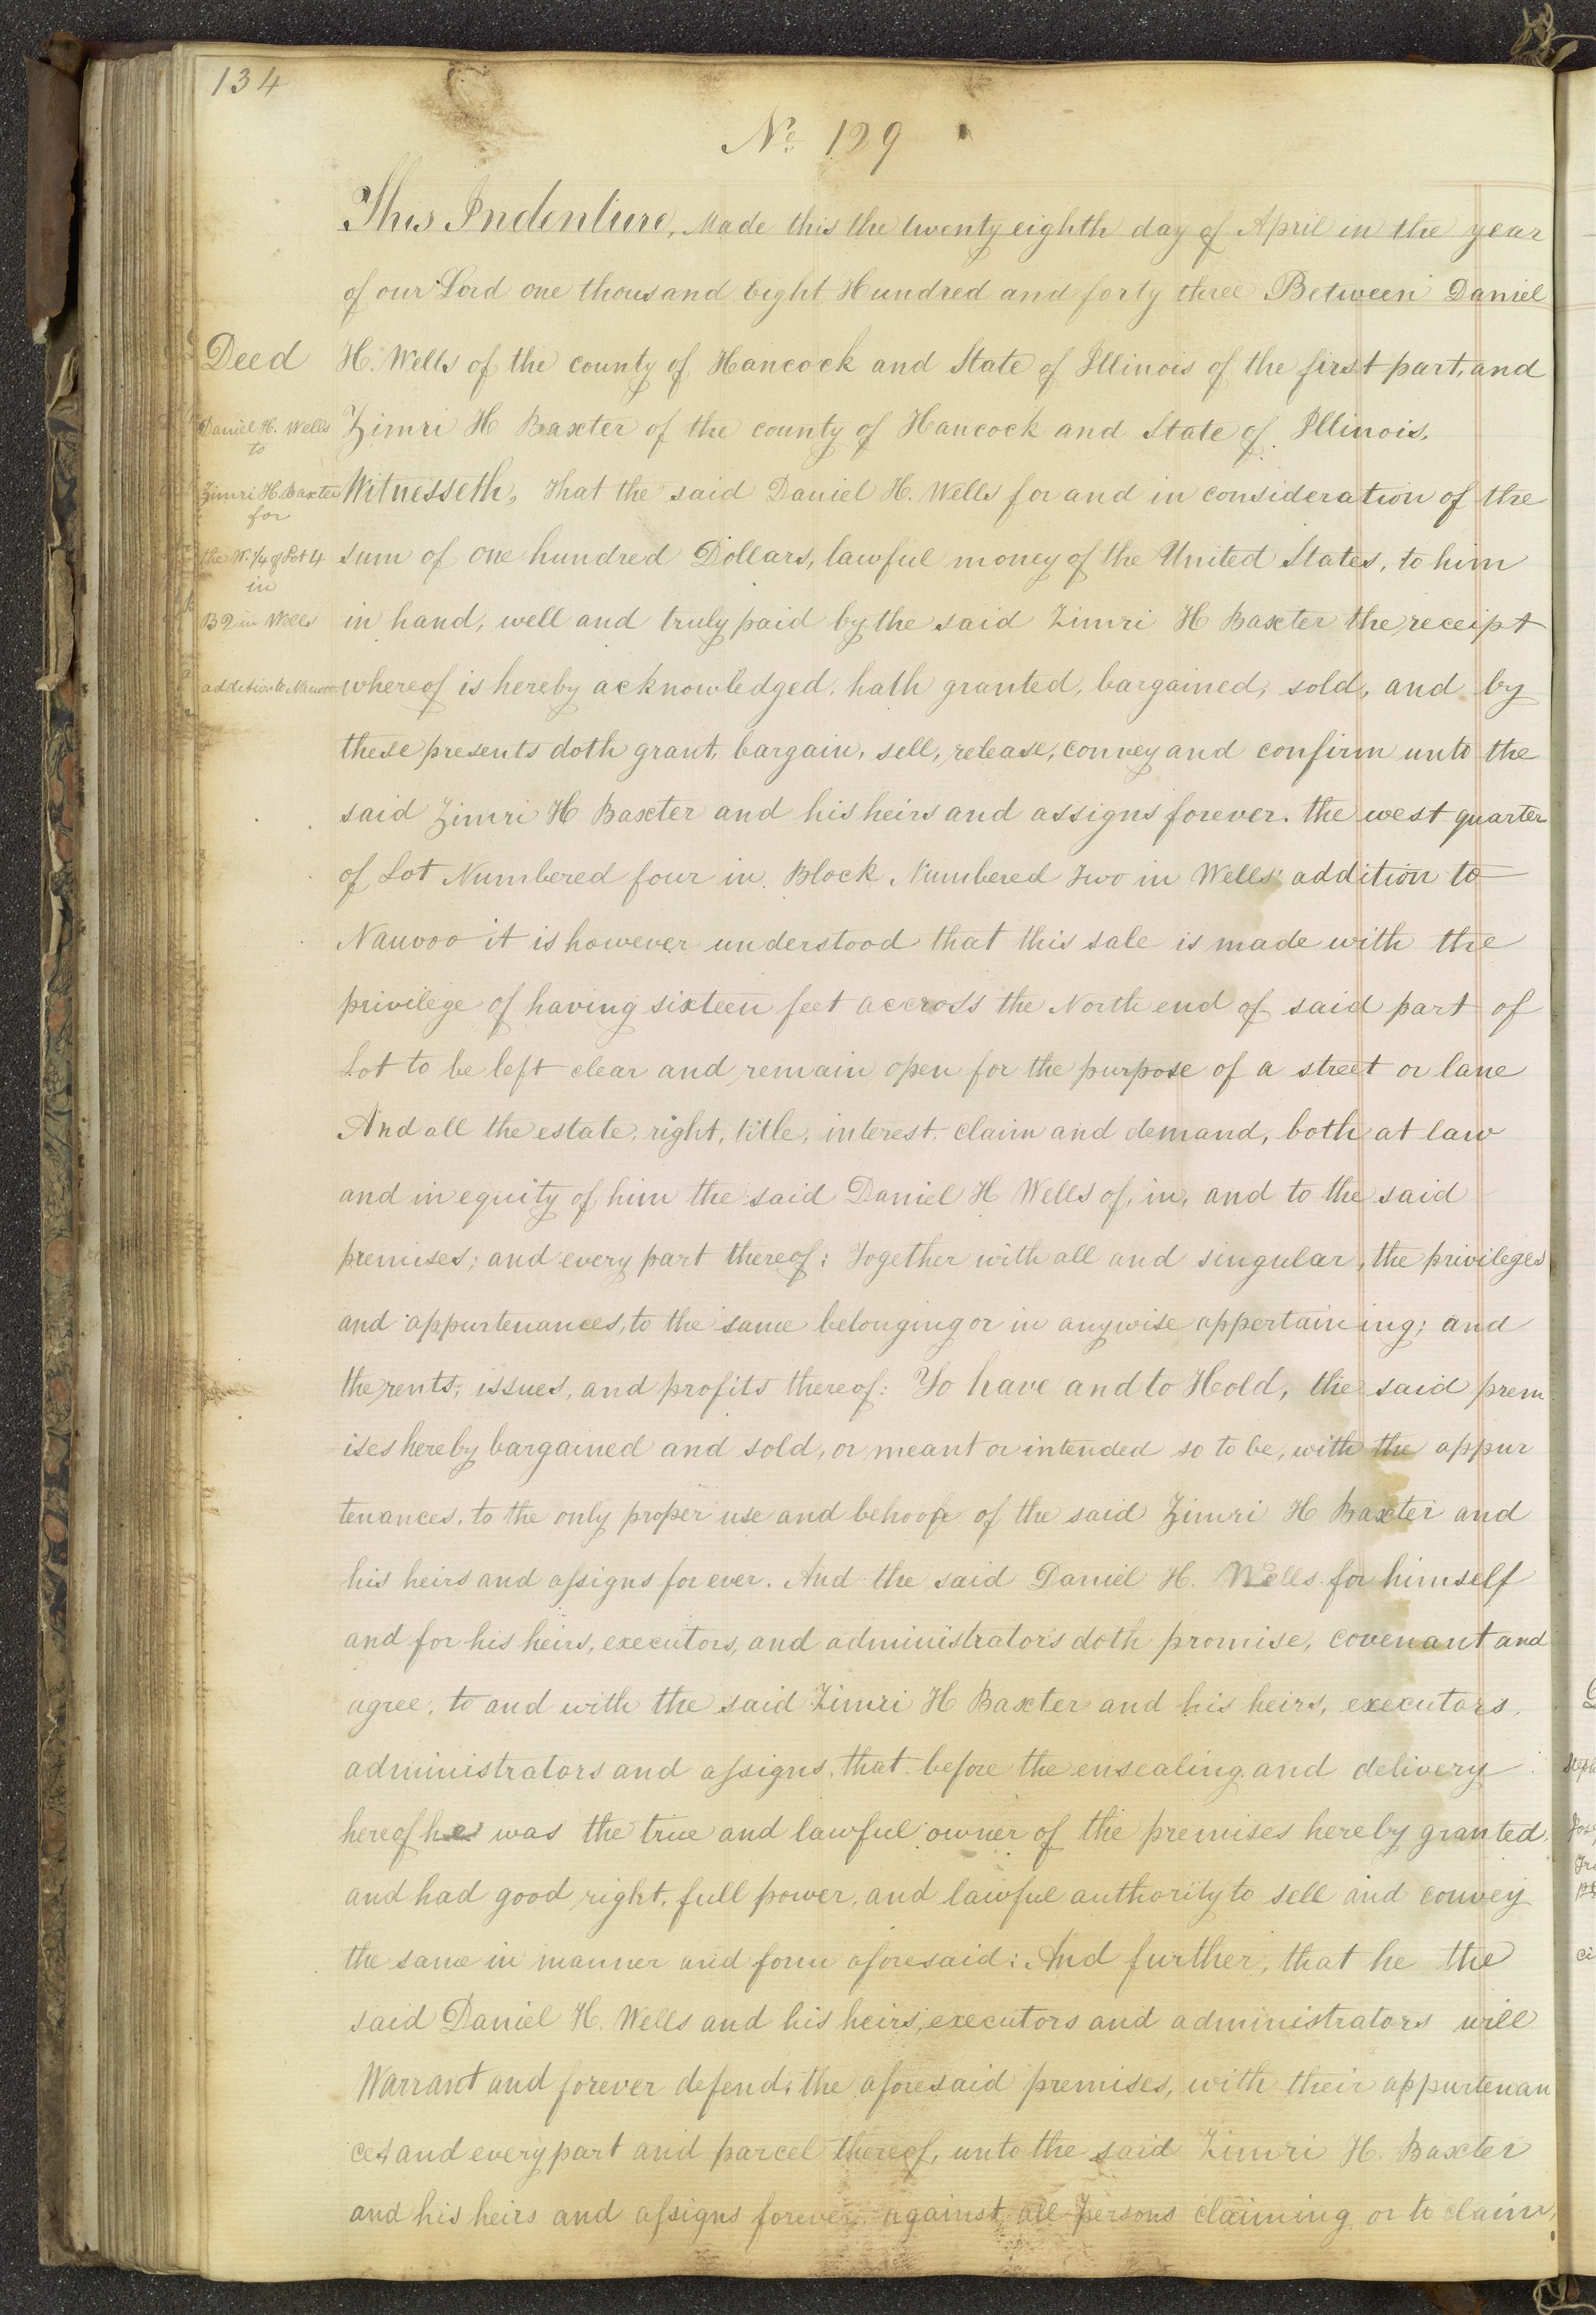 134
No. 199
This Indenture, Made this the twenty eighth day of April in the year
of our Lord one thousand Eight Hundred and forty three Between Daniel
Deed
H. Wells of the county of Hancock and State of Illinois of the first part, and
Daniel H. Wells
to
Zimri H Baxter of the county of Hancock and State of Illinois.
Zimri H. Baxter
for
Witnesseth, That the said Daniel H. Wells for and in consideration of the
the W. 1/4 of Lot 4
in
sum of one hundred Dollars, lawful money of the United States, to him
B 2 in Wells
in hand, well and truly paid by the said Zimri H Baxter the receipt
addition to Nauvoo
whereof is hereby acknowledged, hath granted, bargained, sold, and by
these presents doth grant, bargain, sell, release, convey and confirm unto the
said Zimri H Baxter and his heirs and assigns forever. the west quarter
of Lot Numbered four in Block Numbered Two in Wells' addition to
Nauvoo it is however understood that this sale is made with the
privilege of having sixteen feet accross the North end of said part of
Lot to be left clear and remain open for the purpose of a street or lane
And all the estate, right, title, interest, claim and demand, both at law
and in equity of him the said Daniel H Wells of, in, and to the said
premises; and every part thereof: Together with all and singular, the privileges
and appurtenances, to the same belonging or in anywise appertaining; and
the rents, issues, and profits thereof: To have and to Hold, the said prem
ises hereby bargained and sold, or meant or intended so to be, with the appur
tenances, to the only proper use and behoof of the said Zimri H Baxter and
his heirs and assigns for ever. And the said Daniel H. Wells for himself
and for his heirs, executors, and administrators doth promise, covenant and
agree, to and with the said Zimri H Baxter and his heirs, executors,
administrators and assigns, that before the ensealing and delivery
hereof he was the true and lawful owner of the premises hereby granted,
and had good right, full power, and lawful authority to sell and convey
the same in manner and form aforesaid: And further, that he the
said Daniel H. Wells and his heirs, executors and administrators will
Warrant and forever defend, the aforesaid premises, with their appurtenan
ces and every part and parcel thereof, unto the said Zimri H. Baxter
and his heirs and assigns forever, against all persons claiming or to claim,